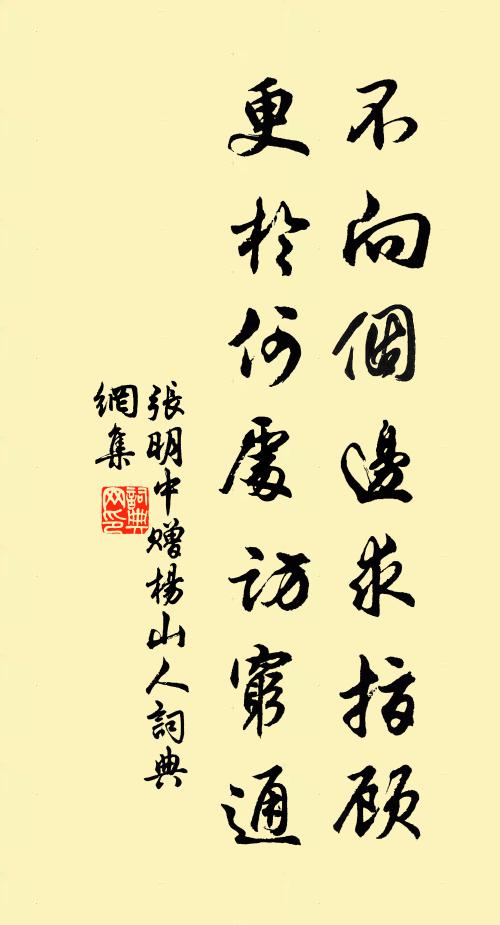 不向個邊求指顾
更於何處訪窮通
張明中贈楊山人詞典
網集
詞典
网印